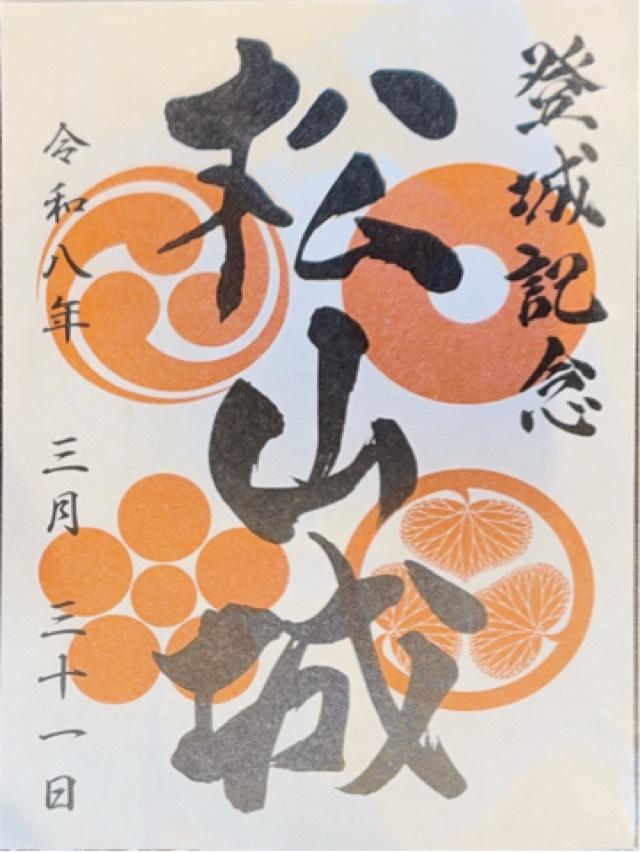 登城記念
松山城
令和八年 三月 三十一日